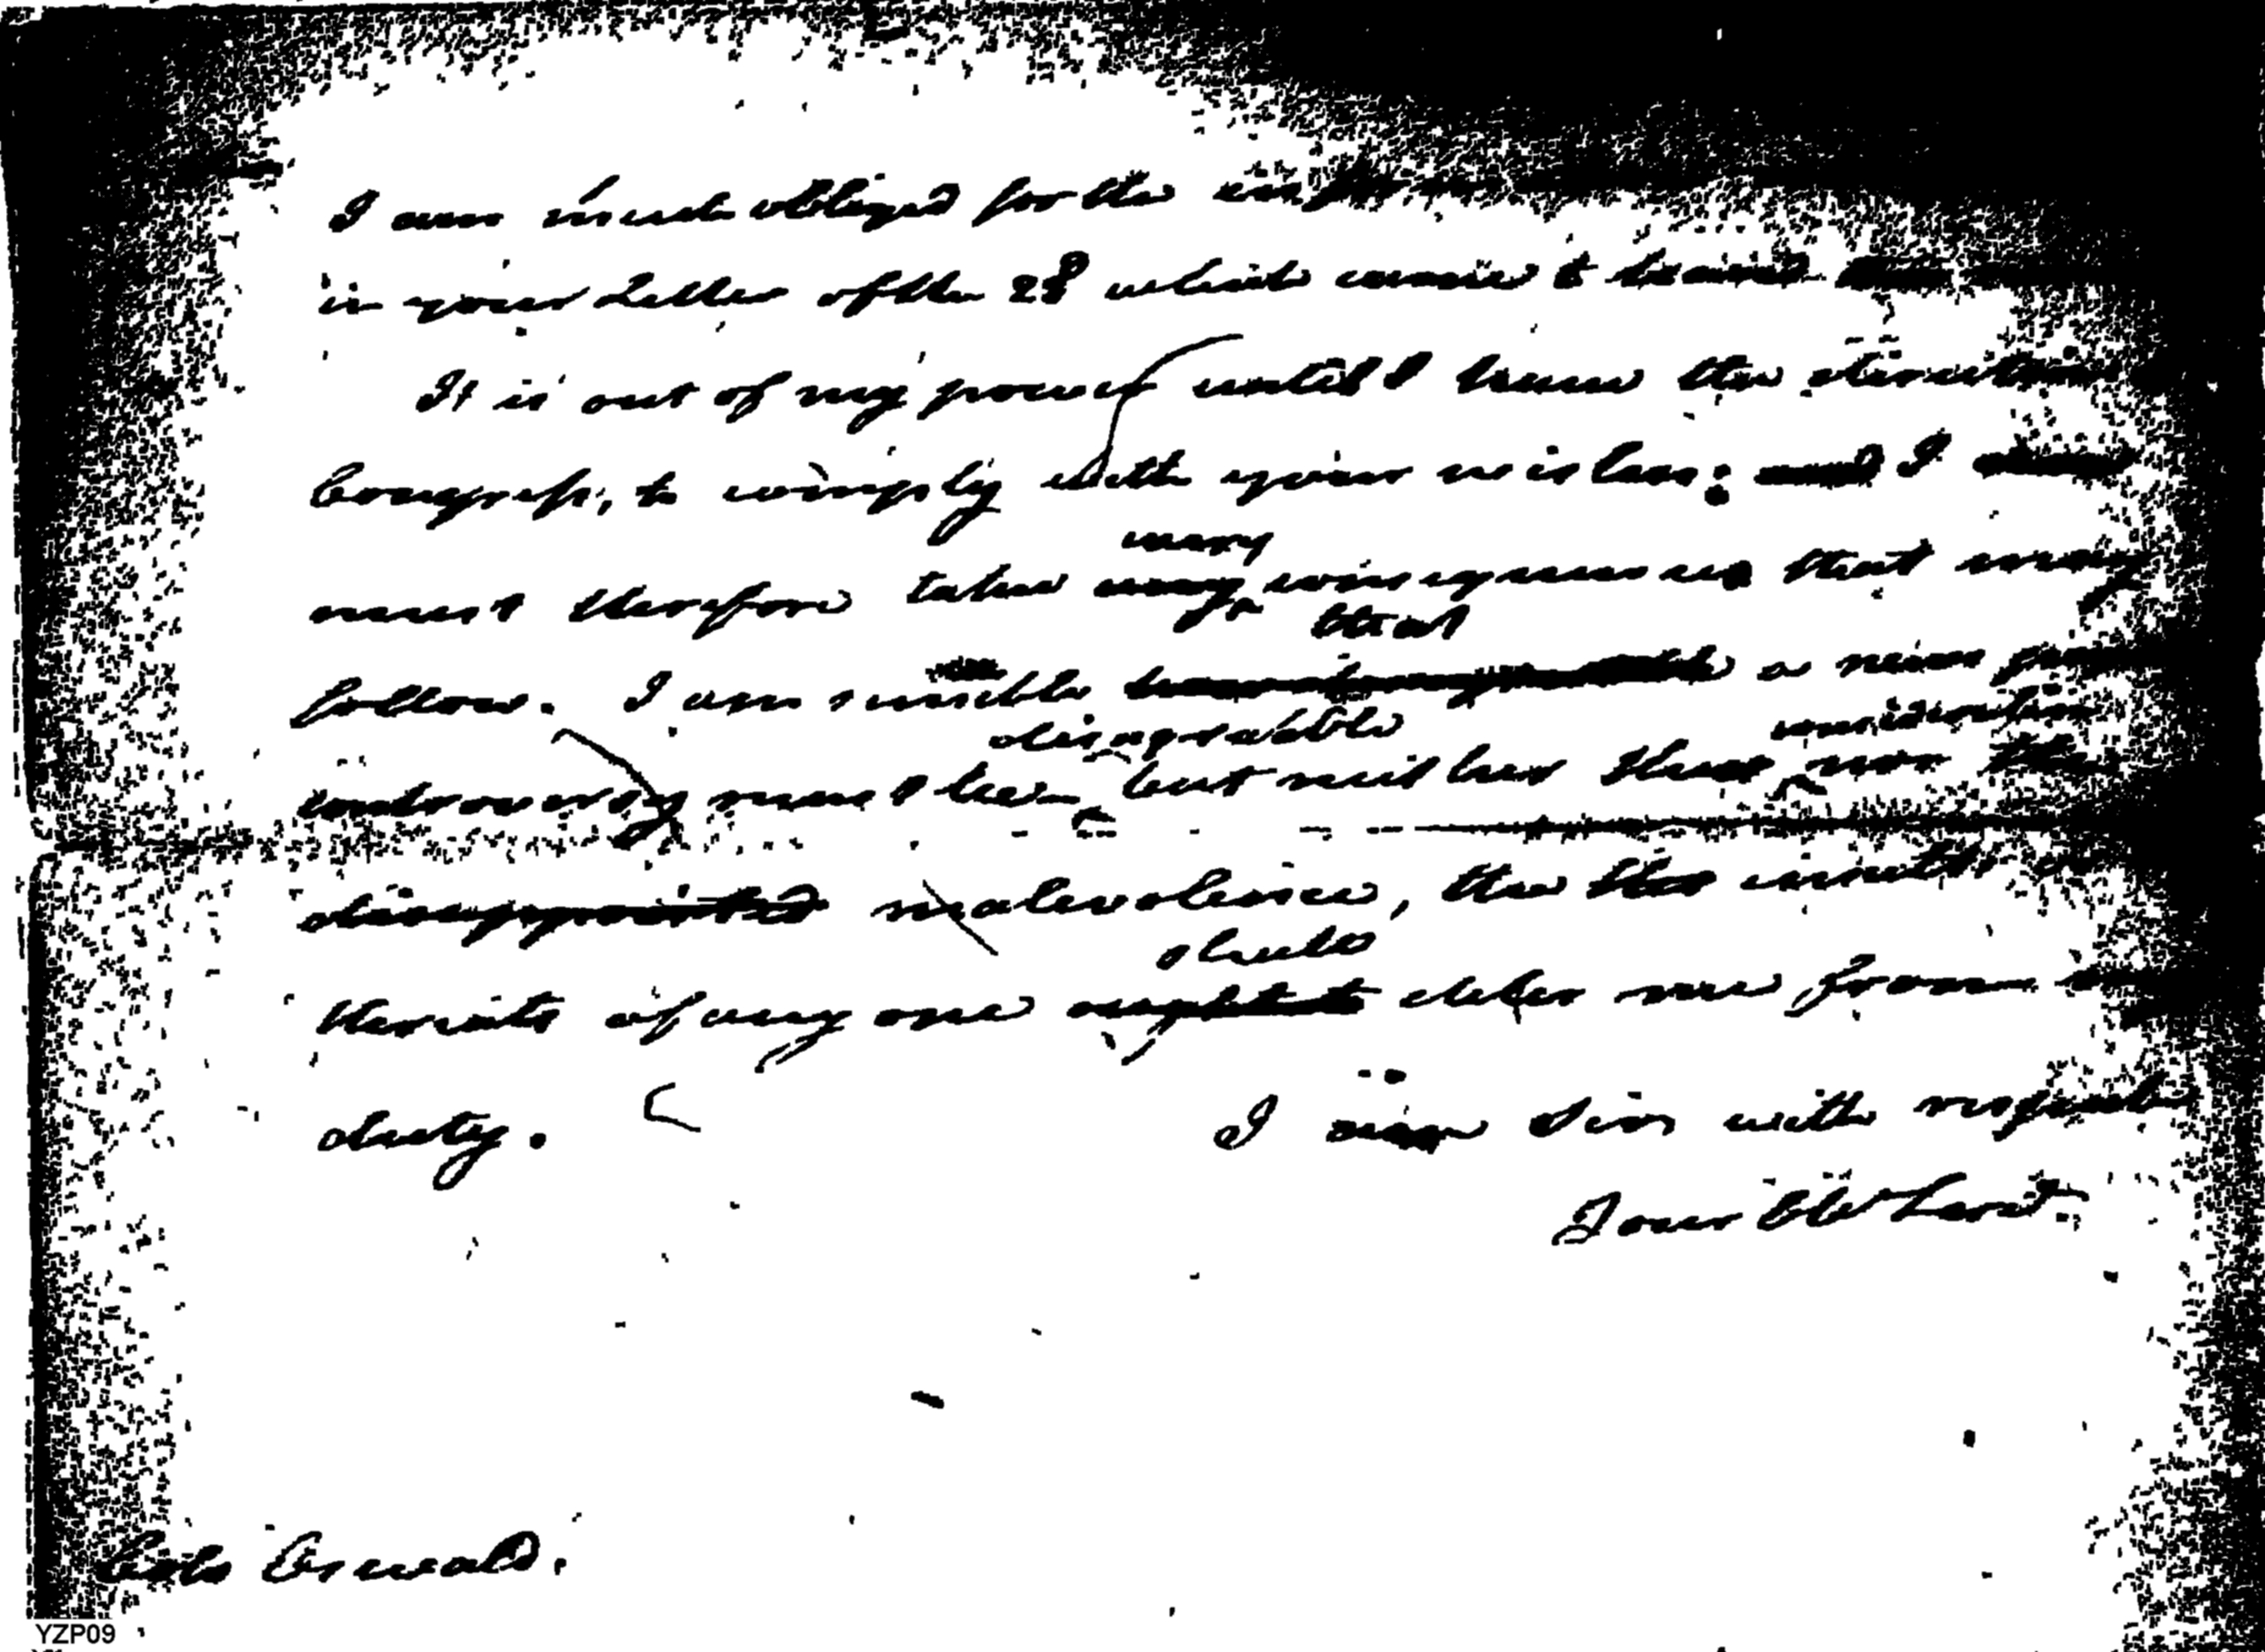 I am much obliged for the
in your Letter of the 28 which came to hand
It is out of my power until I know the
Congress, to comply with your wishes: and I
many
must therefore take any consequences that may
that
follow. I am sensible a news
disagreable consideration
controversy must be but neither that nor the
disappointed malevolence, the the
should
threats of any one ought to deter me from
duty.
I am Sir with respect
Your Ob Servt.
Colo Oswald.
YZP09